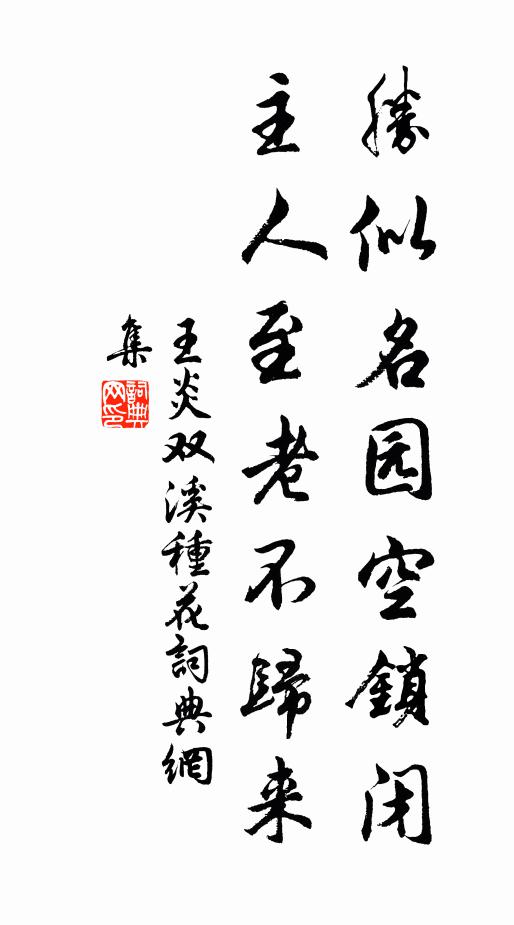 勝似名园空鎖闭
主人至老不歸来
王炎双溪種花詞典網
集
詞典
网印